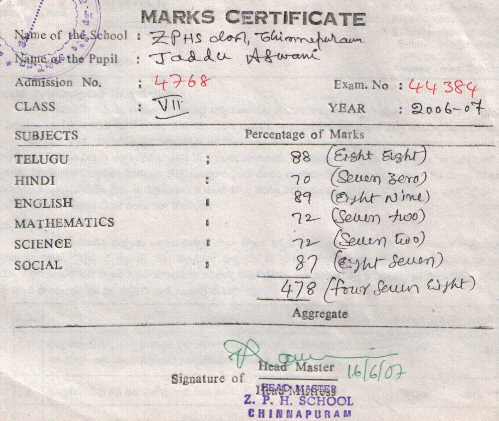 MARKS CERTIFICATE
Name of the School : ZPHS , Chinnapuram
Name of the Pupil : Jaddu Aswani
Admission No. : 4768 Exam. No : 44384
CLASS : VII YEAR : 2006-07
SUBJECTS Percentage of Marks
TELUGU : 88 (Eight Eight)
HINDI : 70 (Seven Zero)
ENGLISH : 89 (Eight Nine)
MATHEMATICS : 72 (Seven two)
SCIENCE : 72 (Seven two)
SOCIAL : 87 (Eight Seven)
478 (four Seven Eight)
Aggregate
Signature of Head Master 16/6/07
Head Mistress
HEAD MASTER
Z. P. H. SCHOOL
CHINNAPURAM